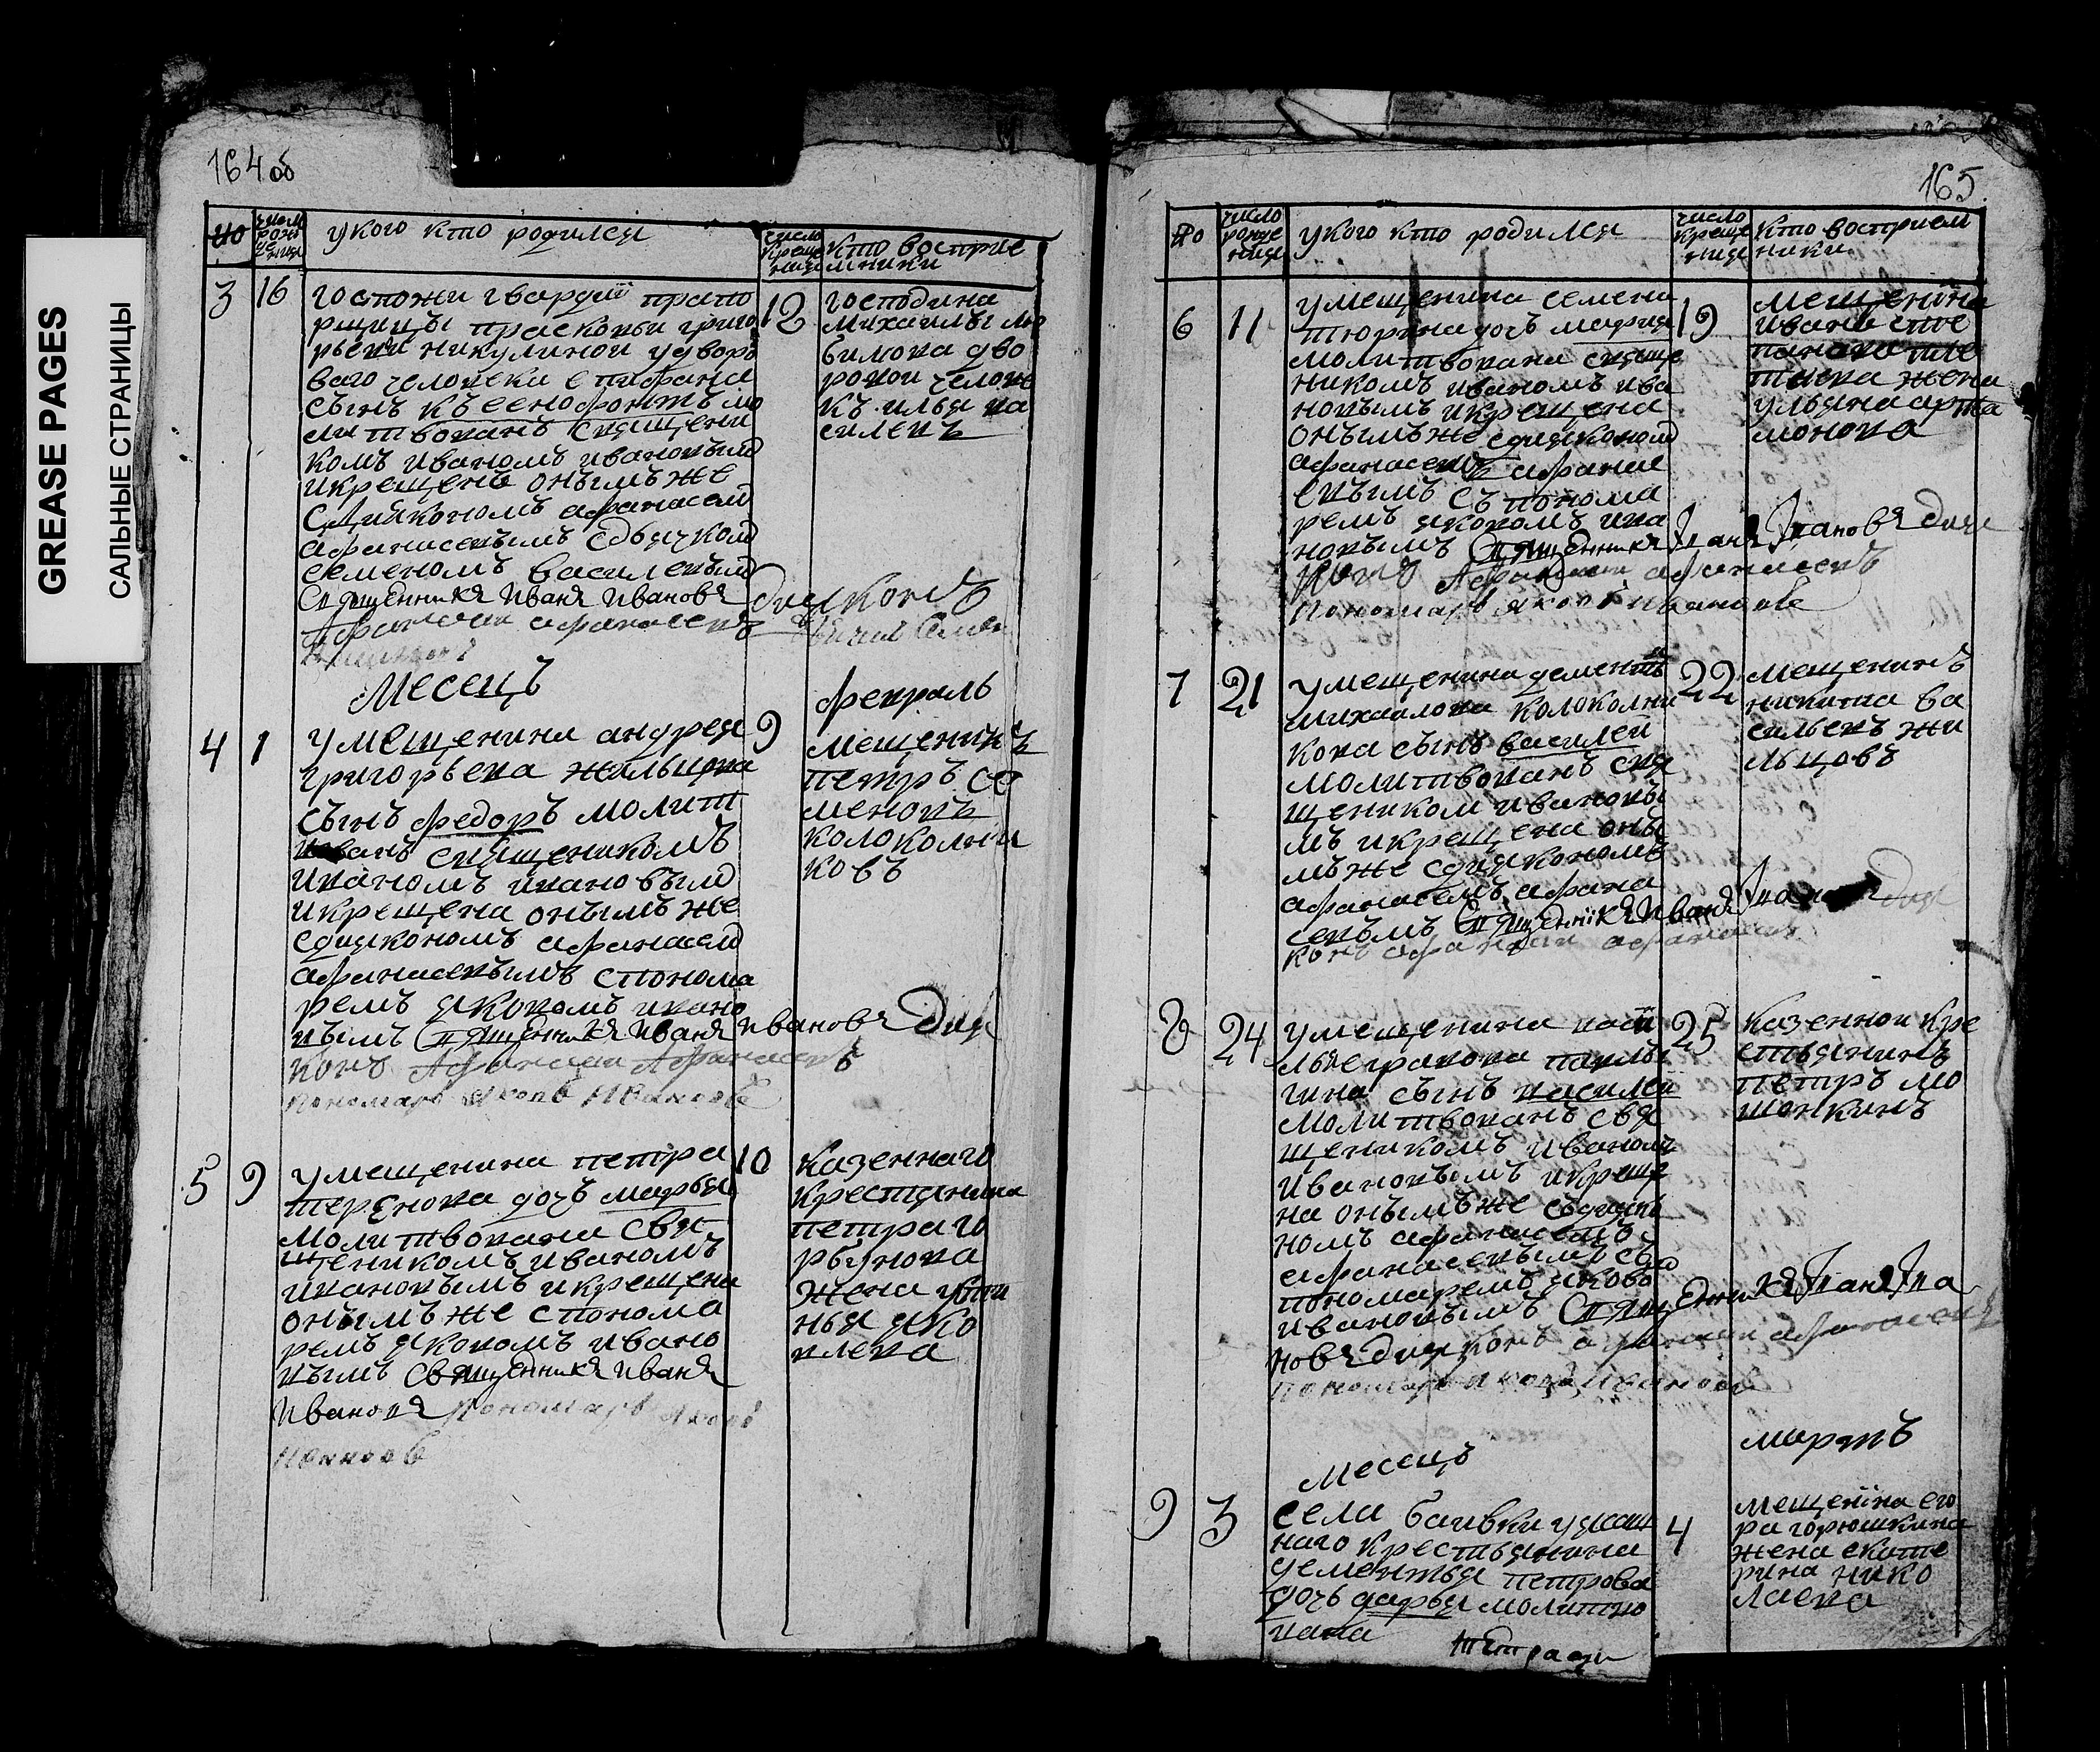 GREASE PAGES
САЛЬНЫЕ СТРАНИЦЫ
164 об
но
число рождения
у кого кто родился
число крещения
кто восприемники
3
16
госпожи гвардии прапо
рщицы прасковьи григо
рьевни никулиной у дворо
ваго человека епифана
сынъ ксенофонтъ мо
литвованъ священи
комъ иваномъ ивановымъ
и крещенъ онымъ же
с диякономъ афанасемъ
афанасевымъ с дьячкомъ
семеномъ василевымъ
Священникъ Иванъ Ивановъ диаконъ
Афанасии афанасевъ
12
господина
михаилы лю
бимова дво
ровой челове
къ илья ва
силевъ
Месецъ
февраль
4
1
у мещенина андрея
григорьева жильцова
сынъ федоръ молит
вованъ священикомъ
иваномъ ивановымъ
и крещена онымъ же
с диякономъ афанасемъ
афанасевымъ с понома
ремъ яковомъ ивано
вымъ Священникъ Иванъ Ивановъ Дия
конъ Афанасии Афанасевъ
пономарь Яковъ Ивановъ
9
мещенинъ
петръ се
меновъ
колоколни
ковъ
5
9
у мещенина петра
теренова дочь марфа
молитвована свя
щеникомъ иваномъ
ивановымъ и крещена
онымъ же с понома
ремъ яковомъ ивано
вымъ Священникъ Иванъ
Ивановъ Пономарь Яковъ
Ивановъ
10
казеннаго
крестянина
петра го
рбунова
жена усти
нья яко
влева
165
но
число рождения
у кого кто родился
число крещения
кто восприемники
6
11
у мещенина семена
тюрина дочь мария
молитвована свяще
никомъ иваномъ ива
новымъ и крещена
онымъ же с диякономъ
афанасемъ афана
севымъ съ понома
ремъ яковомъ ива
новымъ Священникъ Иванъ Ивановъ Дия
конъ Афанасии афанасевъ
пономарь яковъ ивановъ
19
мещенина
ивана сте
панова
жена
ульяна арта
монова
7
21
у мещенина дементья
михаилова колоколни
кова сынъ василей
молитвованъ свя
щеником ивановы
мъ и крещена оны
мъ же с диякономъ
афанасемъ афана
севымъ Священникъ Иванъ Дия
конъ афанасии афанасевъ
22
мещенинъ
никита ва
сильевъ жи
льцовъ
8
24
у мещенина васи
сынъ василей
молитвованъ свя
щеникомъ иваномъ
ивановымъ и креще
на онымъ же съ дияко
номъ афанасемъ
афанасевымъ съ
пономаремъ яково
ивановымъ Священникъ Иванъ Ива
новъ дияконъ афанасии афанасевъ
пономарь яковъ Ивановъ
25
казенной кре
стьянинъ
петръ мо
шонкинъ
Месецъ
мартъ
9
3
села баивки у яшаш
наго крестьянина
дементья петрова
дочь дарья молитво
вана
4
мещенина его
ра горюшкина
жена екате
рина нико
лаева
тетради